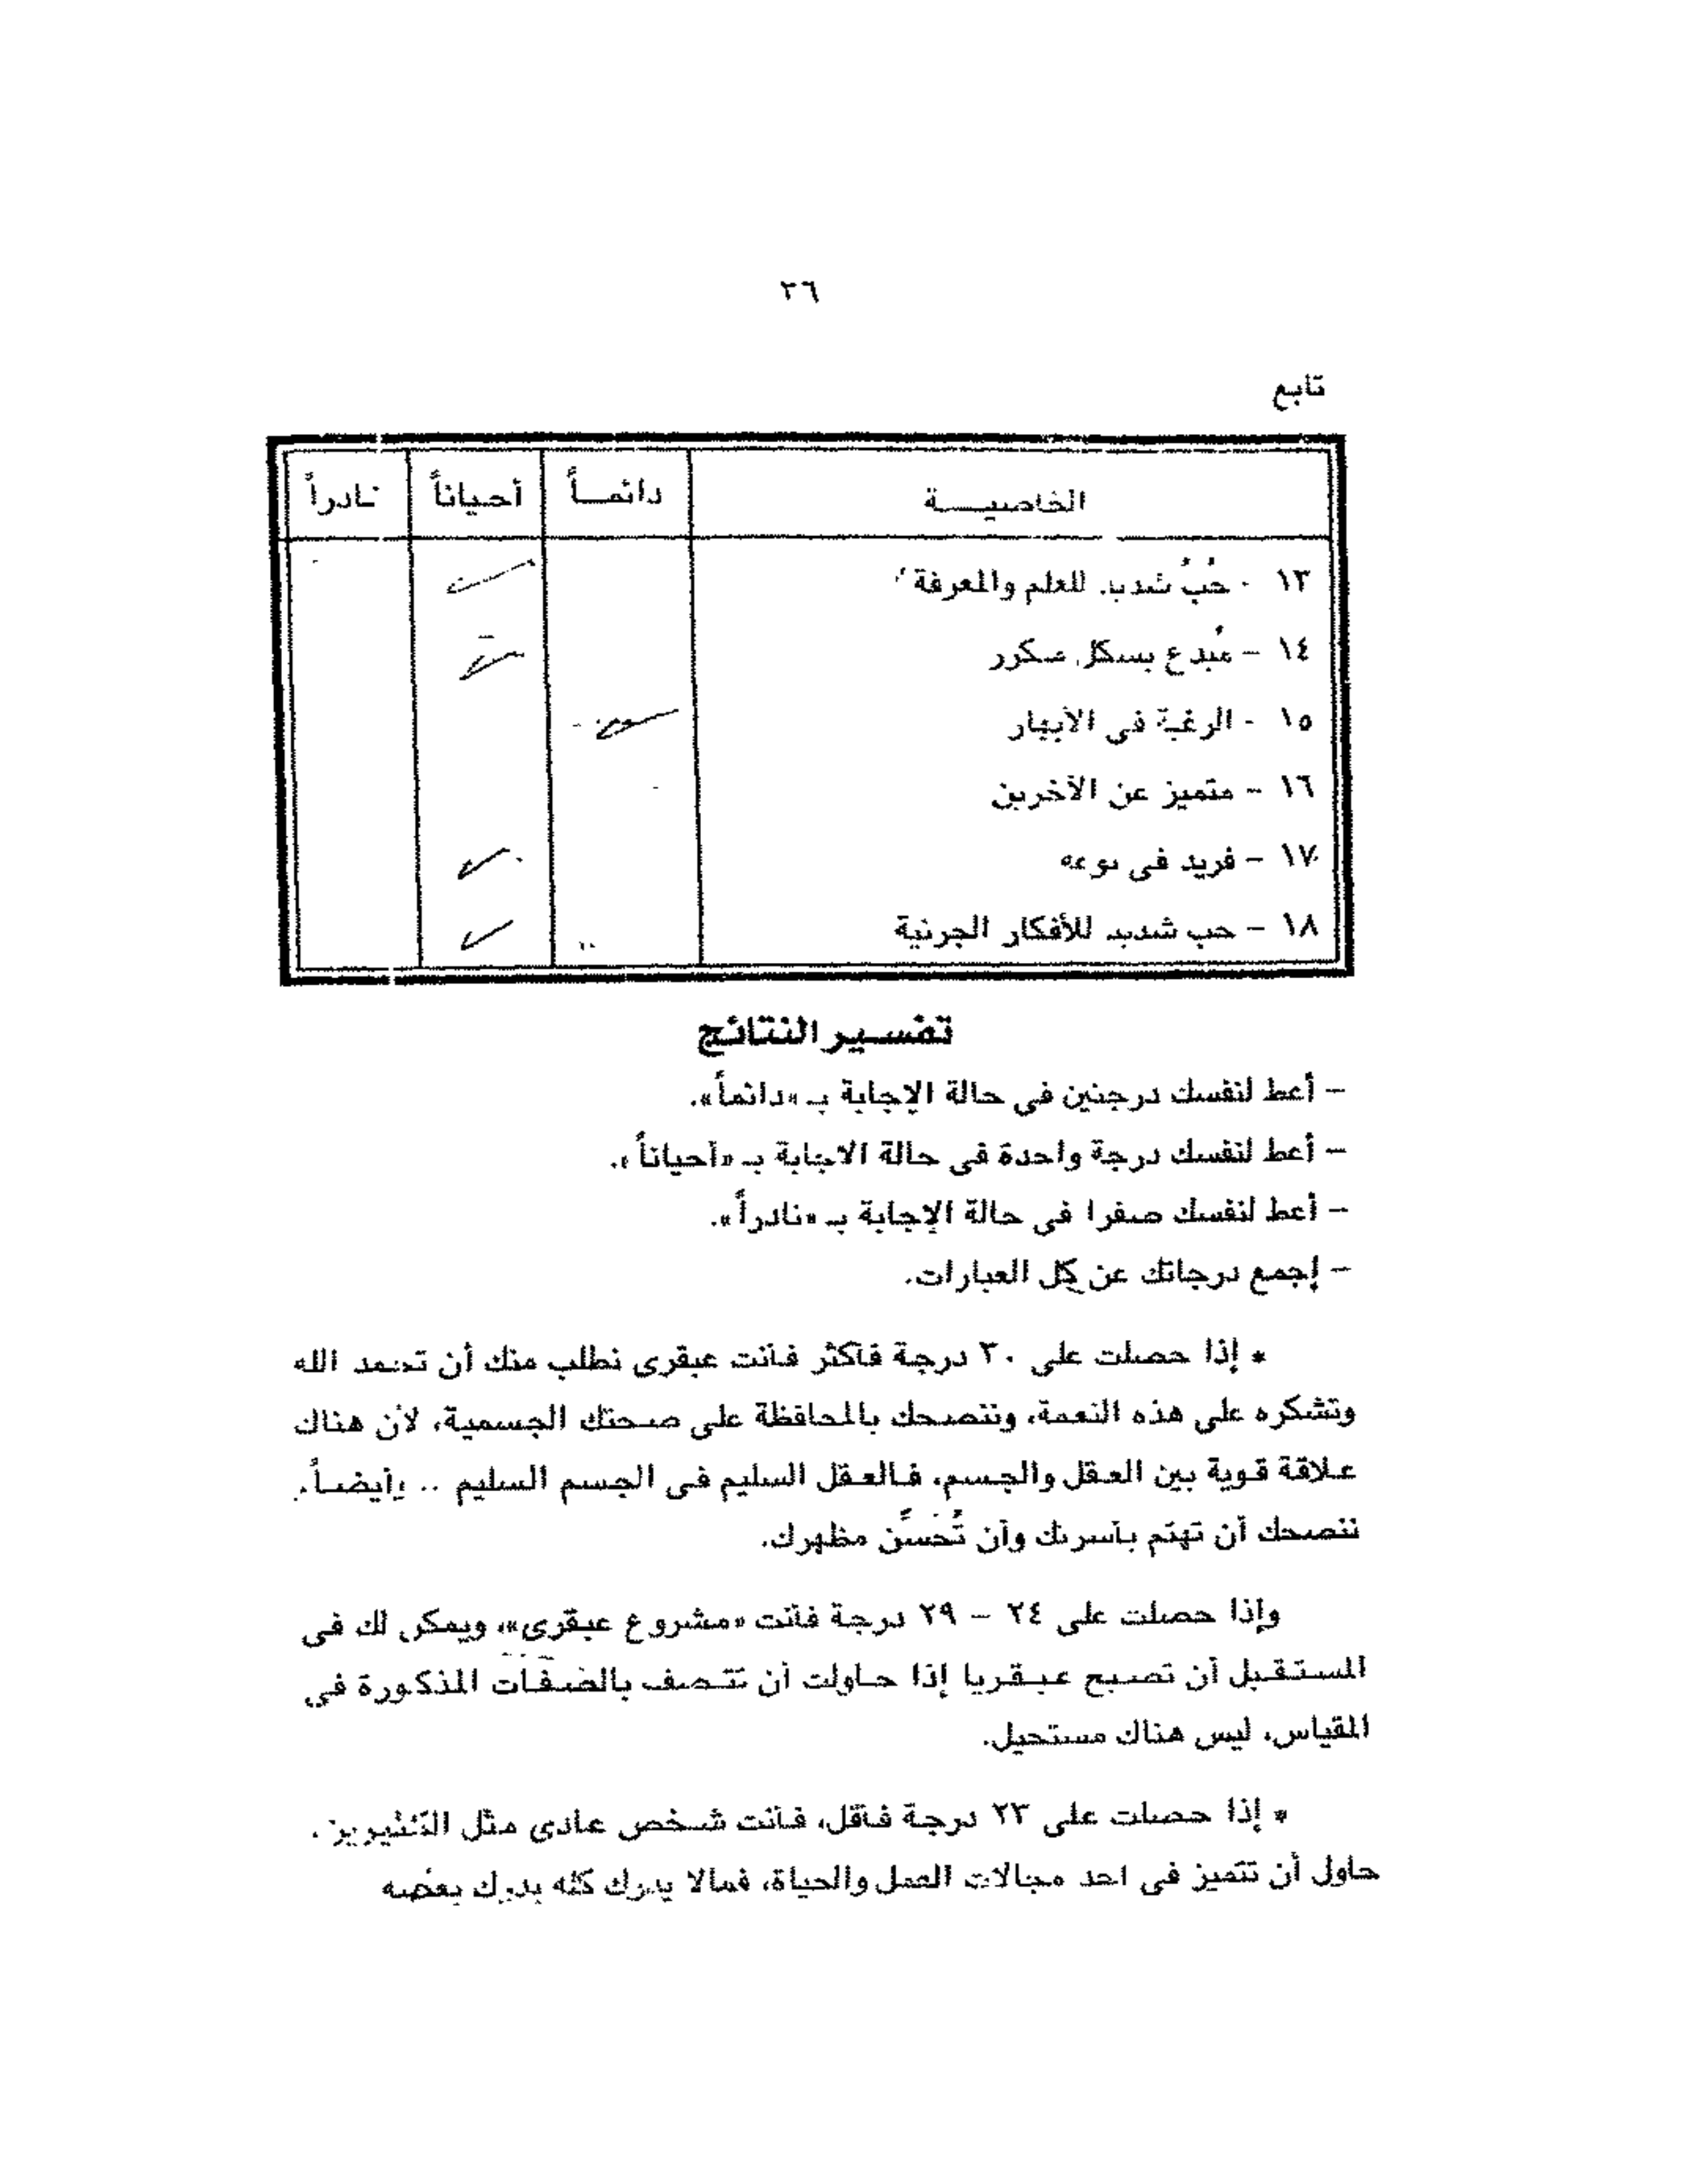 ٣٦
تابع
الخاصيـــة دائمــاً أحياناً نادراً
١٣ - حُبُ شديد للعلم والمعرفة
١٤ - مُبدع بشكل متكرر
١٥ - الرغبة فى الأبهار
١٦ - متميز عن الآخرين
١٧ - فريد فى نوعه
١٨ - حب شديد للأفكار الجرئية
تفسير النتائج
– أعط لنفسك درجتين فى حالة الإجابة بـ «دائماً».
– أعط لنفسك درجة واحدة فى حالة الاجابة بـ «أحياناً».
– أعط لنفسك صفرا فى حالة الإجابة بـ «نادراً».
– إجمع درجاتك عن كل العبارات.
* إذا حصلت على ٣٠ درجة فأكثر فأنت عبقرى نطلب منك أن تحمد الله
وتشكره على هذه النعمة، وننصحك بالمحافظة على صحتك الجسمية، لأن هناك
علاقة قوية بين العقل والجسم، فالعقل السليم فى الجسم السليم .. وأيضاً
ننصحك أن تهتم بأسرتك وأن تُحَسِّن مظهرك.
وإذا حصلت على ٢٤ – ٢٩ درجة فأنت «مشروع عبقرى»، ويمكن لك فى
المستقبل أن تصبح عبقريا إذا حاولت أن تتصف بالصفات المذكورة فى
المقياس، ليس هناك مستحيل.
* إذا حصلت على ٢٣ درجة فأقل، فأنت شخص عادى مثل الكثيرين.
حاول أن تتميز فى احد مجالات العمل والحياة، فمالا يدرك كله يدرك بعضه